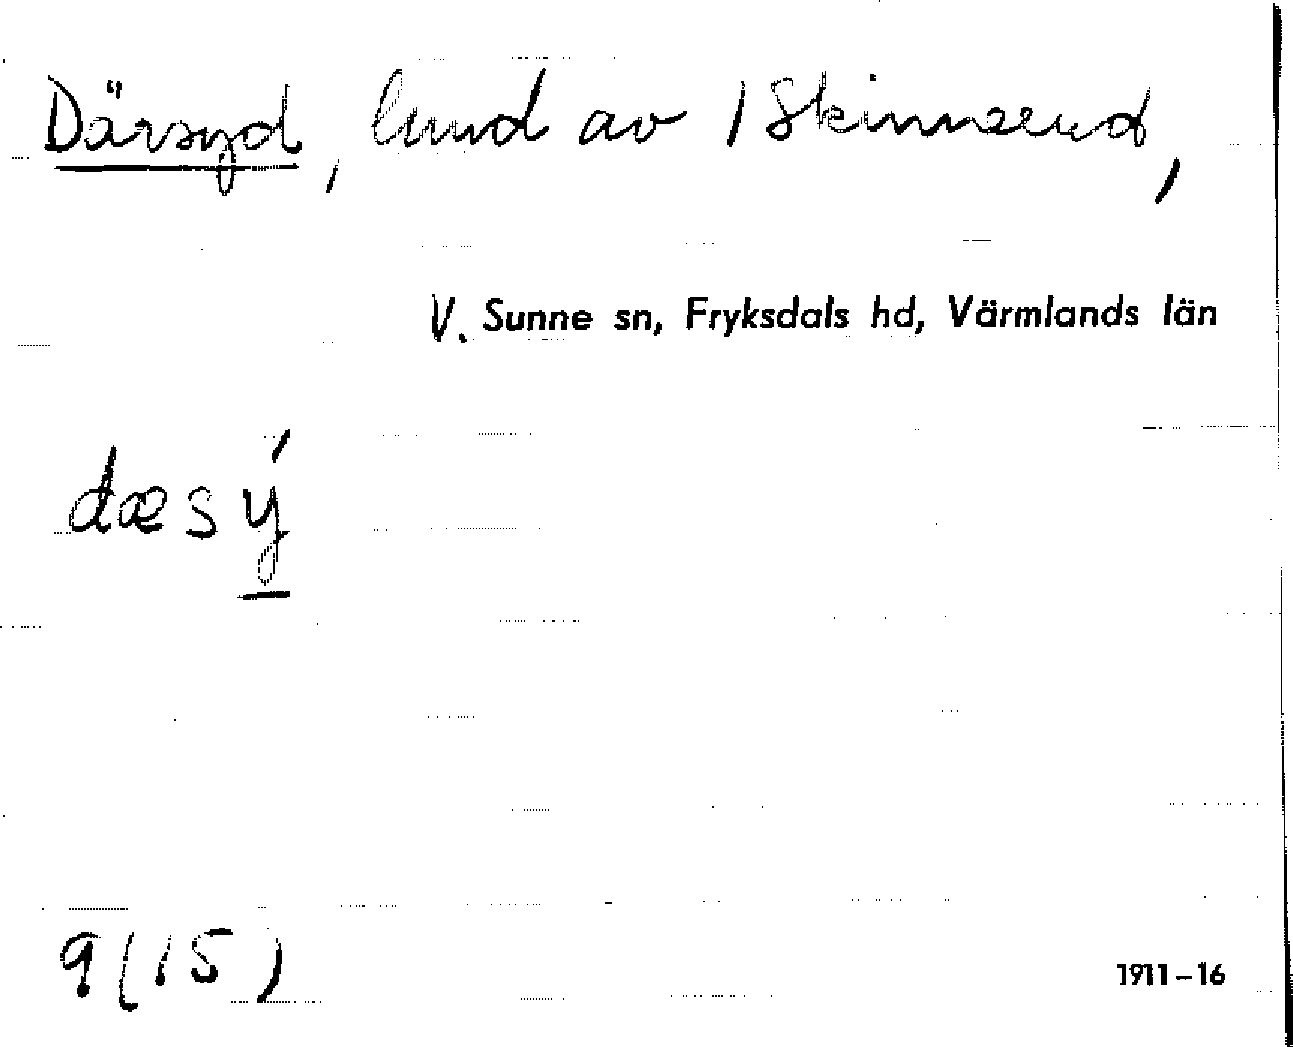 Därsyd, lund av 1 Skinnerud,
V. Sunne sn, Fryksdals hd, Värmlands län
dæsý
9(15)
1911-16